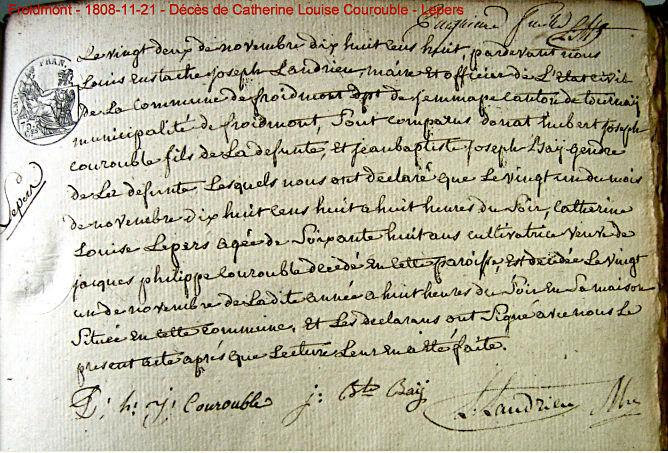 Froidmont - 1808-11-21 - Décès de Catherine Louise Courouble - Lepers
Le vingt deux de novembre dix huit cens huit pardevant nous
Louis Eustache joseph Landrieu, maire et officier de L'Etat civil
de La Commune de froidmont dpt de jemmape canton de tournaÿ
municipalité de froidmont, Sont comparus donat hubert joseph
courouble fils de La defunte, et jean baptiste joseph Baÿ gendre
de La defunte Lesquels nous ont déclaré que Le vingt un du mois
de novembre dix huit cens huit a huit heures du Soir, Catherine
Louise Lepers agée de Soixante huit ans cultivatrice veuve de
jacques philippe courouble décédé En cette paroisse, Est décédée Le vingt
un de novembre de La dite année a huit heures du Soir En Sa maison
Située En cette commune, et Les declarans ont Signé avec nous Le
present acte aprés que Lecture Leur en a Eté faite.
Lepers
D: h: j: Courouble j: Bte Baÿ L. Landrieu